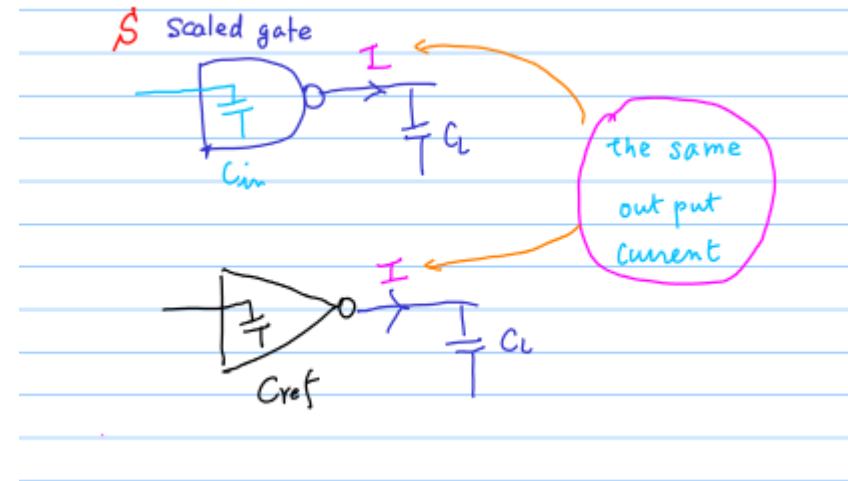 S scaled gate
I
CL
Cin
the same
out put
current
I
CL
Cref